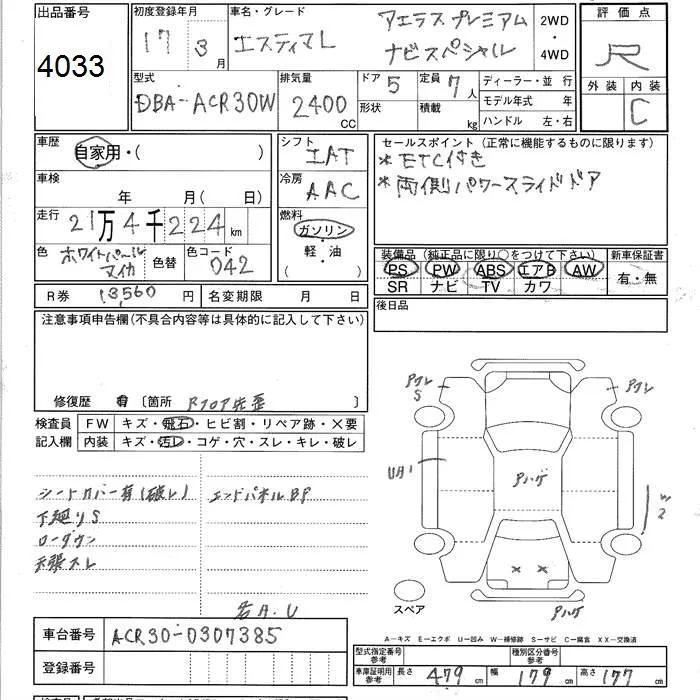 出品番号
4033
初度登録年月
17 3月
車名・グレード
エスティマL
アエラス プレミアム
ナビスペシャル
2WD
・
4WD
評価点
R
外装 内装
C
型式
DBA-ACR30W
排気量
2400
CC
ドア 5
形状
定員 7人
積載 kg
ディーラー・並 行
モデル年式 年
ハンドル 左・右
車歴
自家用・( )
車検
年 月( 日)
走行
21万4千224km
色
ホワイトパール
マイカ
色替
色コード
042
シフト
IAT
冷房
AAC
燃料
ガソリン
・
軽・油
セールスポイント(正常に機能するものに限ります)
*ETC付き
*両側パワースライドドア
装備品(純正品に限り○をつけて下さい)
PS PW ABS エアB AW
SR ナビ TV カワ
新車保証書
有・無
R券 13,560円
名変期限 月 日
後日品
注意事項申告欄(不具合内容等は具体的に記入して下さい)
修復歴 有 〔箇所 Rフロア歪 〕
検査員
記入欄
FW キズ・飛石・ヒビ割・リペア跡・×要
内装 キズ・汚レ・コゲ・穴・スレ・キレ・破レ
シートカバー有(破レ)
下廻りS
ローダウン
天張スレ
エンドパネルBP
名A.U
Pワレ
S
Pワレ
UA1
Pハゲ
W2
××
Pハゲ
スペア
A-キズ E-エクボ U-凹み W-補修跡 S-サビ C-腐食 XX-交換済
車台番号
ACR30-0307385
登録番号
型式指定番号
参考
種別区分番号
参考
車庫証明用
参考
長さ 479cm
幅 179cm
高さ 177cm